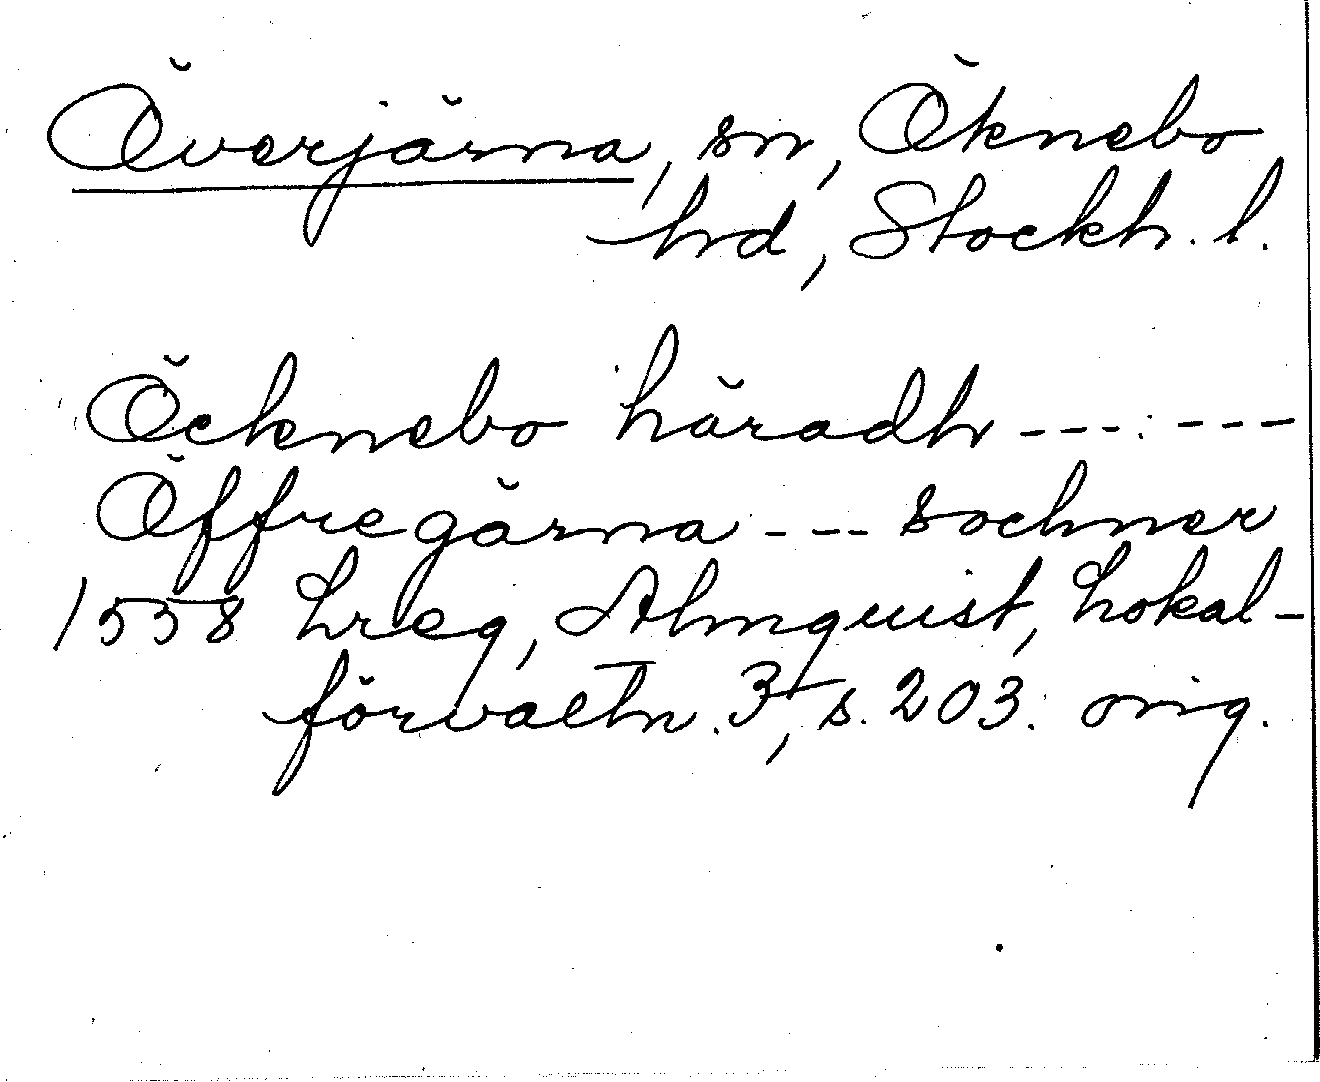 Överjärna, sn, Öknebo
hd, Stockh. l.
Öcknebo häradh --- ---
Öffregärna --- sochner
1558 Lreg, Almquist, Lokal-
förvaltn. 3, s. 203. orig.